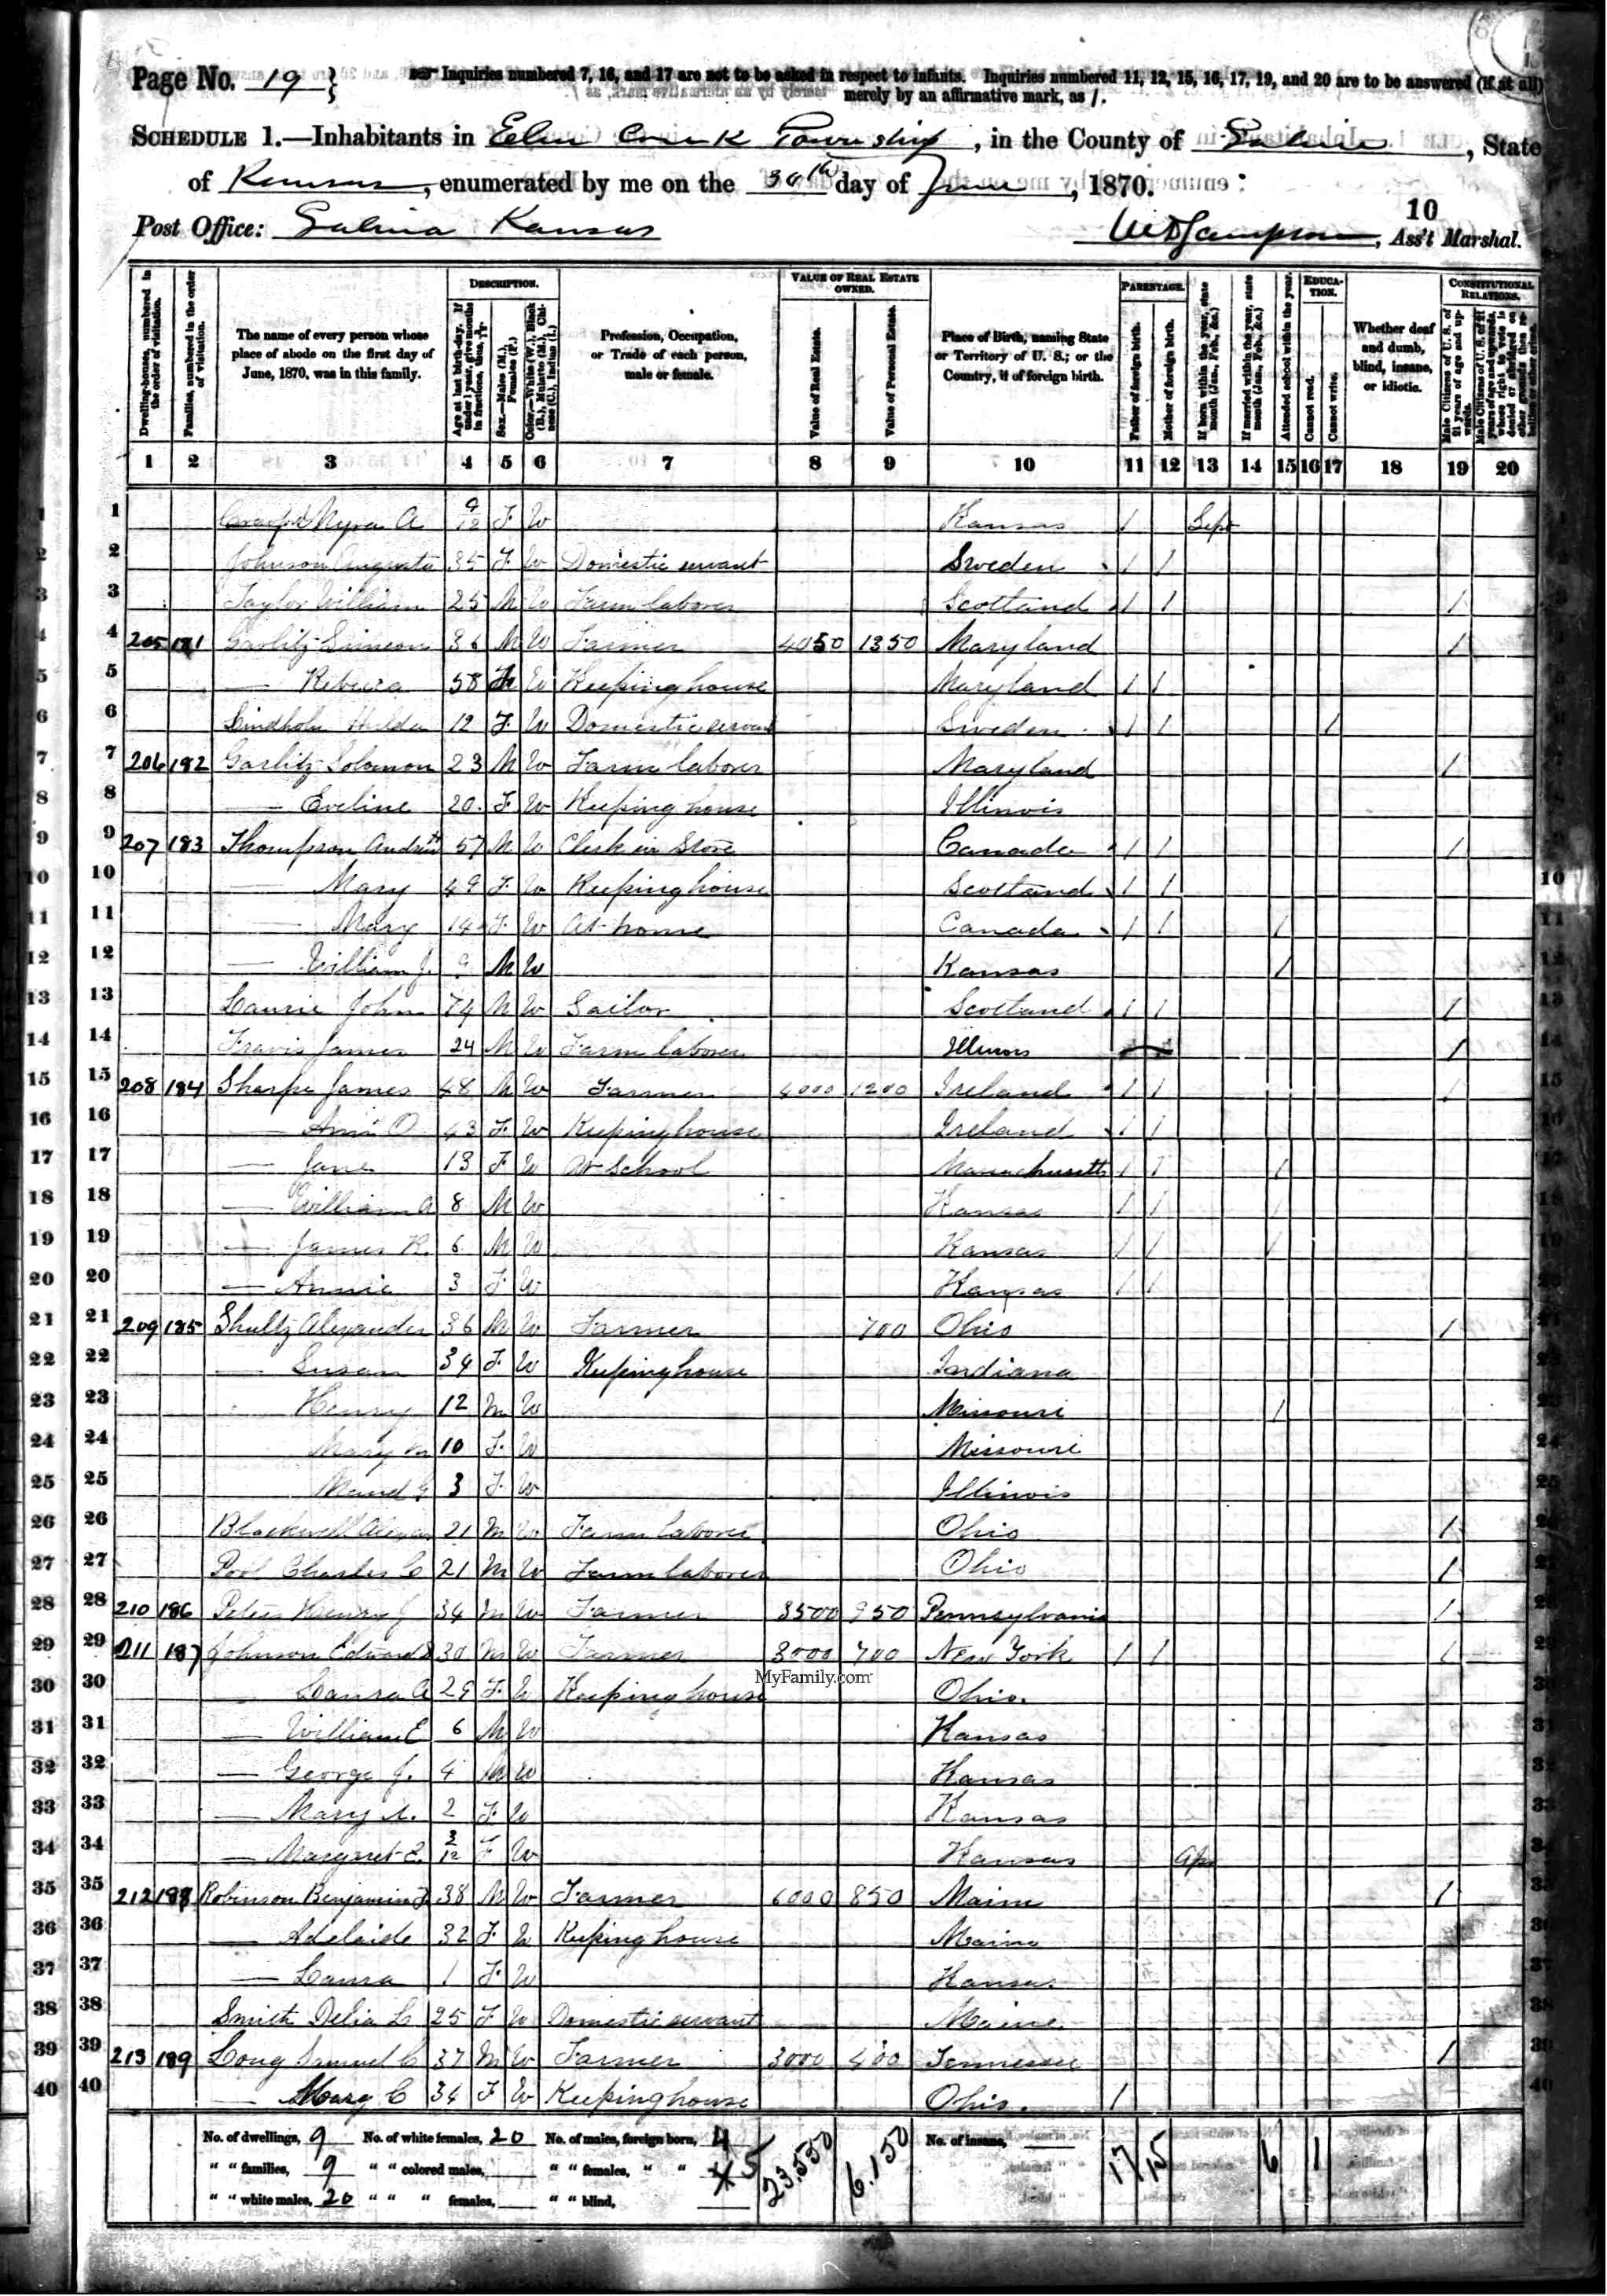 Page No. 19 }
Inquiries numbered 7, 16, and 17 are not to be asked in respect to infants. Inquiries numbered 11, 12, 15, 16, 17, 19, and 20 are to be answered (if at all)
merely by an affirmative mark, as /.
SCHEDULE 1.—Inhabitants in Elm Creek Township, in the County of Saline, State
of Kansas, enumerated by me on the 30th day of June, 1870.
10
Post Office: Salina Kansas
Ass't Marshal.
DESCRIPTION. VALUE OF REAL ESTATE OWNED. PARENTAGE. EDUCATION. CONSTITUTIONAL RELATIONS.
Dwelling-house, numbered in the order of visitation.
Families, numbered in the order of visitation.
The name of every person whose place of abode on the first day of June, 1870, was in this family.
Age at last birth-day. If under 1 year, give months in fractions, thus, 3/12.
Sex.—Males (M.), Females (F.)
Color.—White (W.), Black (B.), Mulatto (M.), Chinese (C.), Indian (I.)
Profession, Occupation, or Trade of each person, male or female.
Value of Real Estate.
Value of Personal Estate.
Place of Birth, naming State or Territory of U. S.; or the Country, if of foreign birth.
Father of foreign birth.
Mother of foreign birth.
If born within the year, state month (Jan., Feb., &c.)
If married within the year, state month (Jan., Feb., &c.)
Attended school within the year.
Cannot read.
Cannot write.
Whether deaf and dumb, blind, insane, or idiotic.
Male Citizens of U. S. of 21 years of age and upwards.
1 2 3 4 5 6 7 8 9 10 11 12 13 14 15 16 17 18 19 20
1 Myra A 9/12 F W Kansas / Sept
2 Johnson Augusta 35 F W Domestic servant Sweden / /
3 Taylor William 25 M W Farm laborer Scotland / / /
4 205 181 Garlitz Simeon 36 M W Farmer 4050 1350 Maryland /
5 — Rebecca 58 F W Keeping house Maryland / /
6 Lindholm Hulda 12 F W Domestic servant Sweden / / /
7 206 182 Garlitz Solomon 23 M W Farm laborer Maryland /
8 — Eveline 20 F W Keeping house Illinois
9 207 183 Thompson Andrew 57 M W Clerk in Store Canada / / /
10 — Mary 49 F W Keeping house Scotland / /
11 — Mary 14 F W At home Canada / / /
12 — William J. 9 M W Kansas /
13 Laurie John 74 M W Sailor Scotland / / /
14 Travis James 24 M W Farm laborer Illinois /
15 208 184 Sharpe James 48 M W Farmer 4000 1200 Ireland / / /
16 — Ann O 43 F W Keeping house Ireland / /
17 — Jane 13 F W At School Massachusetts / / /
18 — William A 8 M W Kansas / / /
19 — James R. 6 M W Kansas / / /
20 — Annie 3 F W Kansas / /
21 209 185 Shultz Alexander 36 M W Farmer 700 Ohio /
22 — Susan 34 F W Keeping house Indiana
23 Henry 12 M W Missouri /
24 Mary M 10 F W Missouri
25 Maud G 3 F W Illinois
26 Blackwell 21 M W Farm laborer Ohio /
27 Pool Charles C 21 M W Farm laborer Ohio /
28 210 186 Peters Henry J 34 M W Farmer 3500 950 Pennsylvania /
29 211 187 Johnson Edward 30 M W Farmer 3000 700 New York / / /
MyFamily.com
30 — Laura A 29 F W Keeping house Ohio.
31 — William E 6 M W Kansas
32 — George J. 4 M W Kansas
33 — Mary A. 2 F W Kansas
34 — Margaret E. 3/12 F W Kansas Apr
35 212 188 Robinson Benjamin F. 38 M W Farmer 6000 850 Maine /
36 — Adelaide 32 F W Keeping house Maine
37 — Laura 1 F W Kansas
38 Smith Delia L 25 F W Domestic servant Maine
39 213 189 Long Samuel C 37 M W Farmer 3000 400 Tennessee /
40 — Mary C 34 F W Keeping house Ohio. /
No. of dwellings, 9 No. of white females, 20 No. of males, foreign born, 4 23,550 6,150 No. of insane, 17 15 6 1
" " families, 9 " " colored males, " " females, " " 5
" " white males, 20 " " " females, " " blind,